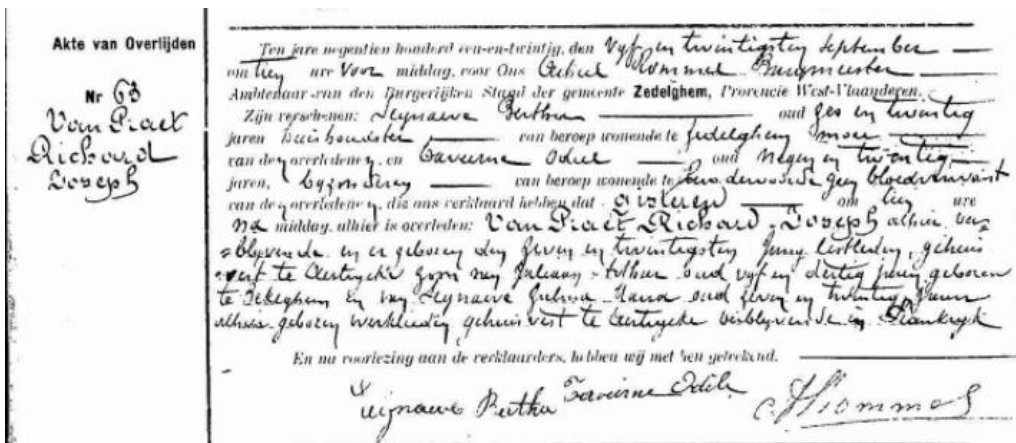 Akte van Overlijden
Nr 63
Van Praet
Richard
Joseph
Ten jare negentien honderd een-en-twintig, den Vyf en twintigsten September
om tien ure voor middag, voor Ons Burgmeester
Ambtenaar van den Burgerlijken Stand der gemeente Zedelghem, Provencie West-Vlaanderen.
Zijn verschenen: Seynaeve Bertha oud zes en twintig
jaren huishoudster van beroep wonende te Zedelghem moei
van den overledenen, en Taveirne Odiel oud Negen en twintig
jaren, van beroep wonende te geen bloedverwant
van den overledenen, die ons verklaard hebben dat gisteren om tien ure
Na middag, alhier is overleden: Van Praet Richard-Joseph alhier ver-
=blyvende en er geboren den zeven en twintigsten Juny lestleden, gehuis
=vest te Aertrycke zoon van Arthur oud vyf en dertig jaren geboren
te Zedelghem en van Seynaeve Maria oud zeven en twintig jaren
alhier geboren werklieden gehuisvest te Aertrycke verblyvende in Frankryk
En na voorlezing aan de verklaarders, hebben wij met hen geteekend.
Seijnaeve Bertha Taveirne Odiel